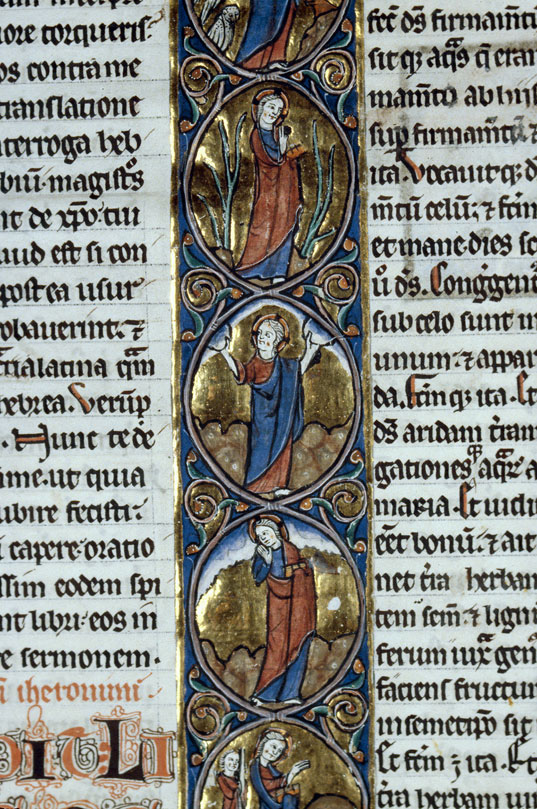 uore torqueris.
os contra me
translatione
nterroga heb
biū. magistͦs
nt de xp̄o. tui
uid est si con
postea usur
obauerint. ⁊
latina qͣm
hebrea. Verūp̱
. Nunc te dē
me. ut quia
ubire fecisti.
i capere. oratio
ssim eodem spi
nt libri. eos in
e sermonem.
iheronimi.
DILI
fec̄ d̄s firmam̄tū
sitqꝫ aqͣs q̄ eran
mam̄to ab hiis
suꝑ firmam̄t. ⁊
ita. Vocauitqꝫ d
m̄tū celū. ⁊ fc̄m
et mane. dies sc
d̄s. Congͬgent
sub celo sunt in
unum. ⁊ appar
da. fc̄mqꝫ ita. Et
d̄s aridam t̄ram
gationesqꝫ aqͣꝝ a
maria. Et uidi
eēt bonū. ⁊ ait
net t̄ra herbam
tem sem̄. ⁊ lignū
ferum iuxͣ gen̄
faciens fructum
in semetip̄o sit
Et fc̄m ē ita. Et
t̄ra herbam uir